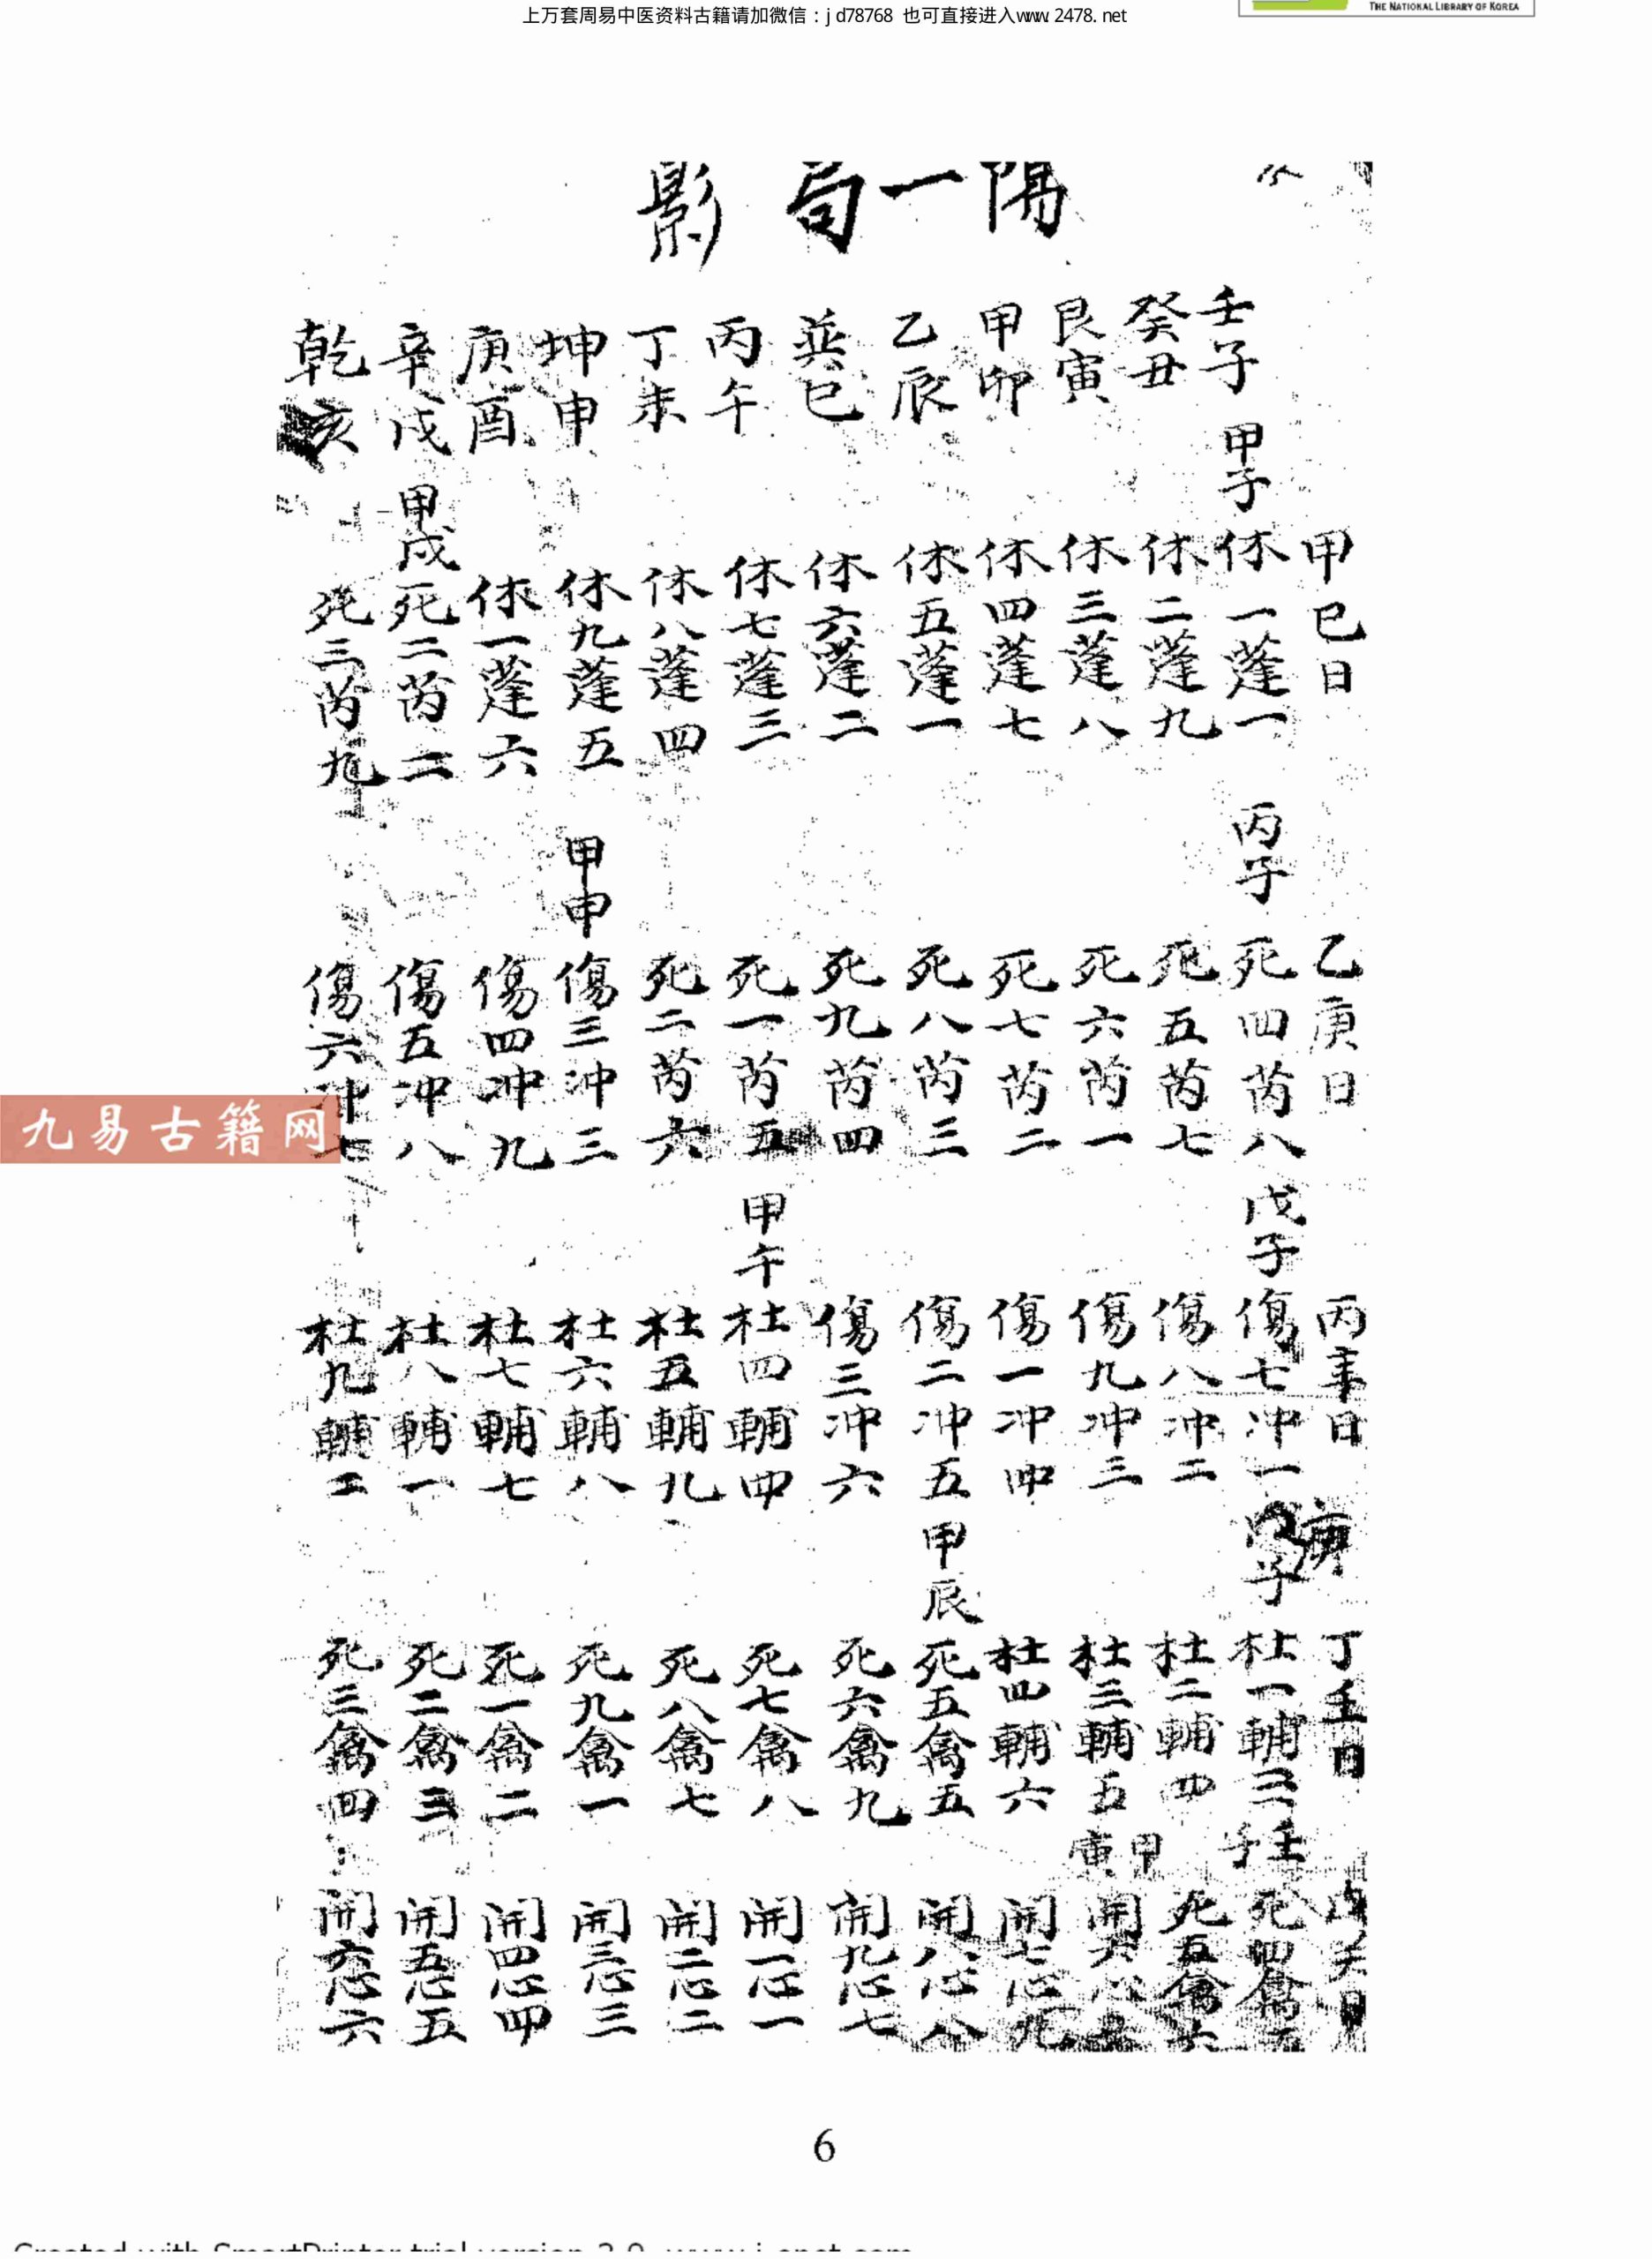 上万套周易中医资料古籍请加微信:jd78768 也可直接进入www.2478.net
THE NATIONAL LIBRARY OF KOREA
陽一局 影
甲巳日 乙庚日 丙辛日 丁壬日
壬子 甲子 休一蓬一 丙子 死四芮八 戊子 傷七冲一 庚子 杜一輔三 壬子 死四禽
癸丑 休二蓬九 死五芮七 傷八冲二 杜二輔四 死五禽六
艮寅 休三蓬八 死六芮一 傷九冲三 杜三輔五 甲寅 開六心
甲卯 休四蓬七 死七芮二 傷一冲四 杜四輔六 開七心九
乙辰 休五蓬一 死八芮三 傷二冲五 甲辰 死五禽五 開八心八
巽巳 休六蓬二 死九芮四 傷三冲六 死六禽九 開九心七
丙午 休七蓬三 死一芮五 甲午 杜四輔四 死七禽八 開一心一
丁未 休八蓬四 死二芮六 杜五輔九 死八禽七 開二心二
坤申 休九蓬五 甲申 傷三冲三 杜六輔八 死九禽一 開三心三
庚酉 休一蓬六 傷四冲九 杜七輔七 死一禽二 開四心四
辛戌 甲戌 死二芮二 傷五冲八 杜八輔一 死二禽三 開五心五
乾亥 死三芮九 傷六冲七 杜九輔二 死三禽四 開六心六
九易古籍网
6